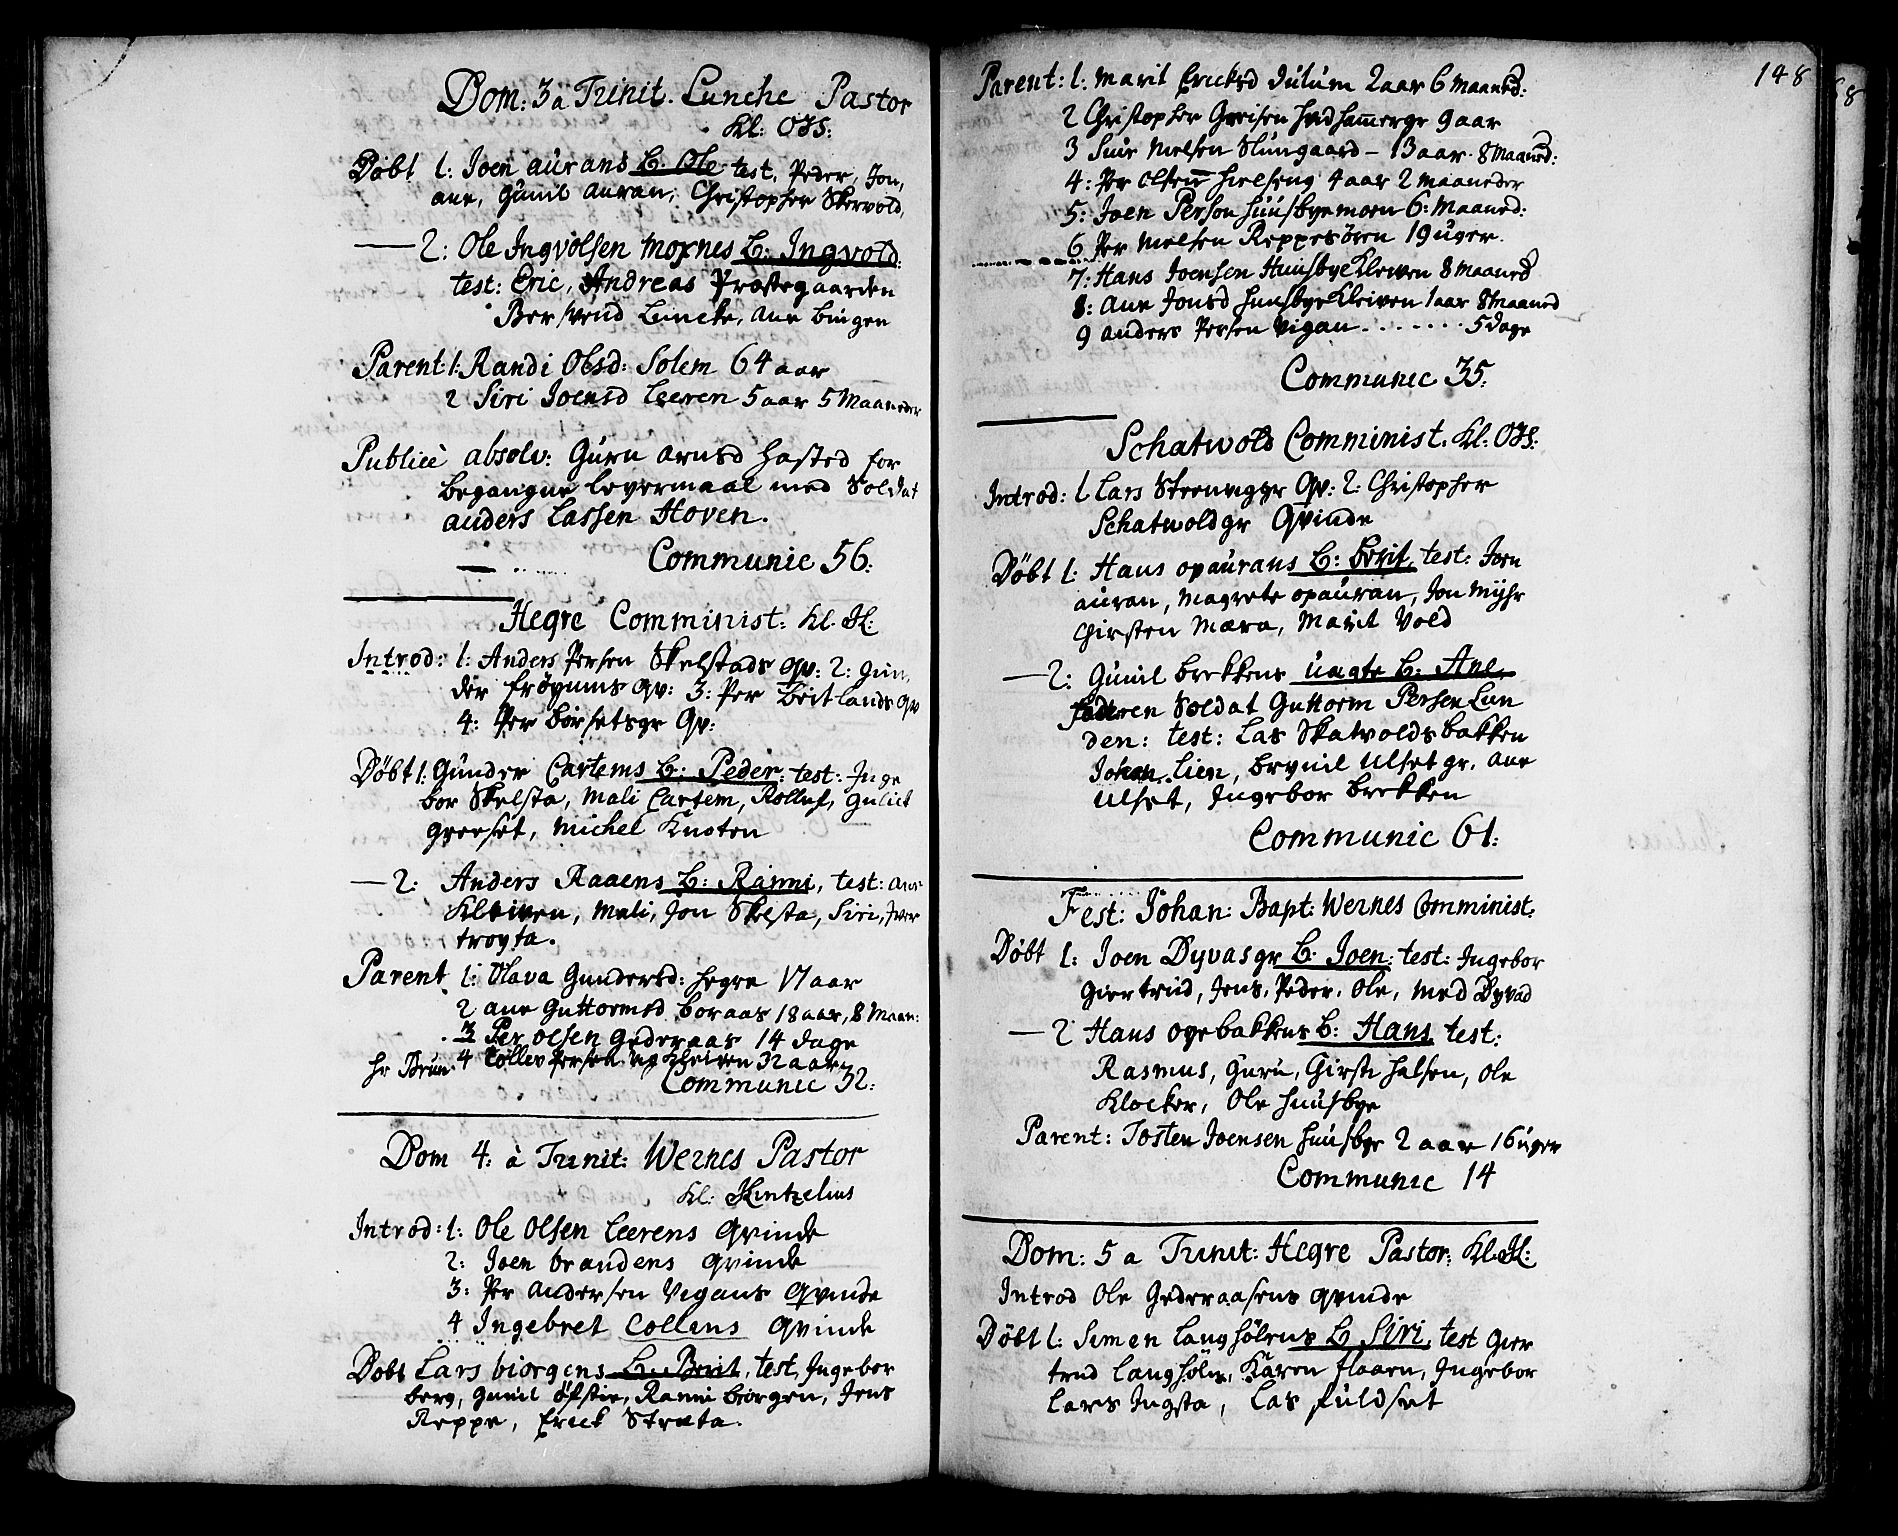 Dom: 3 a Trinit. Lunche Pastor
Kl: OJS:
Døbt 1: Joen aurans b: Ole test, Peder, Jon,
ane, Gunil auran, Christopher Skervold,
— 2: Ole Ingvolsen moxnes b: Ingvold:
test: Eric, Andreas Prostegaarden
Bersvend Luncke, ane bingen
Parent: 1: Randi Olsd: Solem 64 aar
2 Siri Joensd Leeren 5 aar 5 Maaneder
Publicè absolv: Guru arnsd hasted for
begangne leyermaal med Soldat
anders Lassen Hoven.
Communic 56:
Hegre Comminist: Kl. H:
Introd: 1: Anders Persen Skelstads qv: 2: Gun,
der frøynms qv: 3: Per beitlands qv
4: Per borsetsgr Qv:
Døbt 1: Gunder Cartems b: Peder: test: Inge
bor Skelsta, Mali Cartem, Rolluf, Guliet
greeset, Michel Knoten
— 2: Anders Raaens b: Ranni, test: ane
Kleiven, Mali, Jon Skelsta, Siri, Iver
troyta.
Parent 1: Olava Gundersd: hegre 17 aar
2 ane Guttormsd boraas 18 aar, 8 Maan:
3 Per olsen Gederaas 14 dage
hr Brun. 4 Tollev Persen Kleiven 32 aar
Communic 32:
Dom 4: à Trinit: Wernes Pastor
Kl: Hintzelius
Introd: 1: Ole Olsen Leerens Qvinde
2: Joen brandens qvinde
3: Per Andersen Vigans Qvinde
4 Ingebret Collens Qvinde
Døbt Lars biorgens b: Berit, test, Ingebor
berg, Gunil øfstie, Ranni biorgen, Jens
Reppe, Erick Strata.
148
Parent: 1: Marit Ericksd Julum 2 aar 6 Maaned:
2 Christopher Greisen hudhammergr 9 aar
3 Siur Nielsen Slungaard — 13 aar 8 Maaned:
4: Per Olsen hielseng 4 aar 2 Maaneder
5: Joen Person huusbyemoen 6: Maaned:
6 Per Nielsen Reppesøren 19 uger.
7: Hans Joensen Huusbye Kleiven 8 Maaned
8: Ane Jonsd huusbye Kleiven 1 aar 8 Maaned
9 anders Persen Vigan . . . . . . . 5 dage
Communic 35:
Schatwold Comminist. Kl: OJS:
Introd: 1 Lars Steenveggr Qv: 2: Christopher
Schatwoldgr Qvinde
Døbt 1: Hans opaurans b: berit, test: Joen
auran, Magrete opauran, Jon Myhr
Girsten Mæra, Marit Vold
— 2: Gunil brekkens uægte b: Ane.
faderen Soldat Guttorm Persen Lun
den: test: Las Skatvoldsbakken
Johan Lien, brynil Ulset gr, ane
Ulset, Ingebor brekken
Communic 61:
Fest: Johan: Bapt: Wernes Comminist:
Døbt 1: Joen Dyvasgr b: Joen: test: Ingebor
Giertrud, Jens, Peder, Ole, Med Dyvad
— 2 Hans oyebakkens b: Hans test:
Rasmus, Guru, Girsti halsen, Ole
Klocker, Ole huusbye
Parent: Tosten Joensen huusbye 2 aar 16 uger
Communic 14
Dom: 5 a Trinit: Hegre Pastor: Kl. H:
Introd Ole Gederaasens qvinde
Døbt 1: Simen Langhølens b Siri, test Gier
trud langhøln, Karen flaarn, Ingebor
Lars Ingsta, Las fuldset